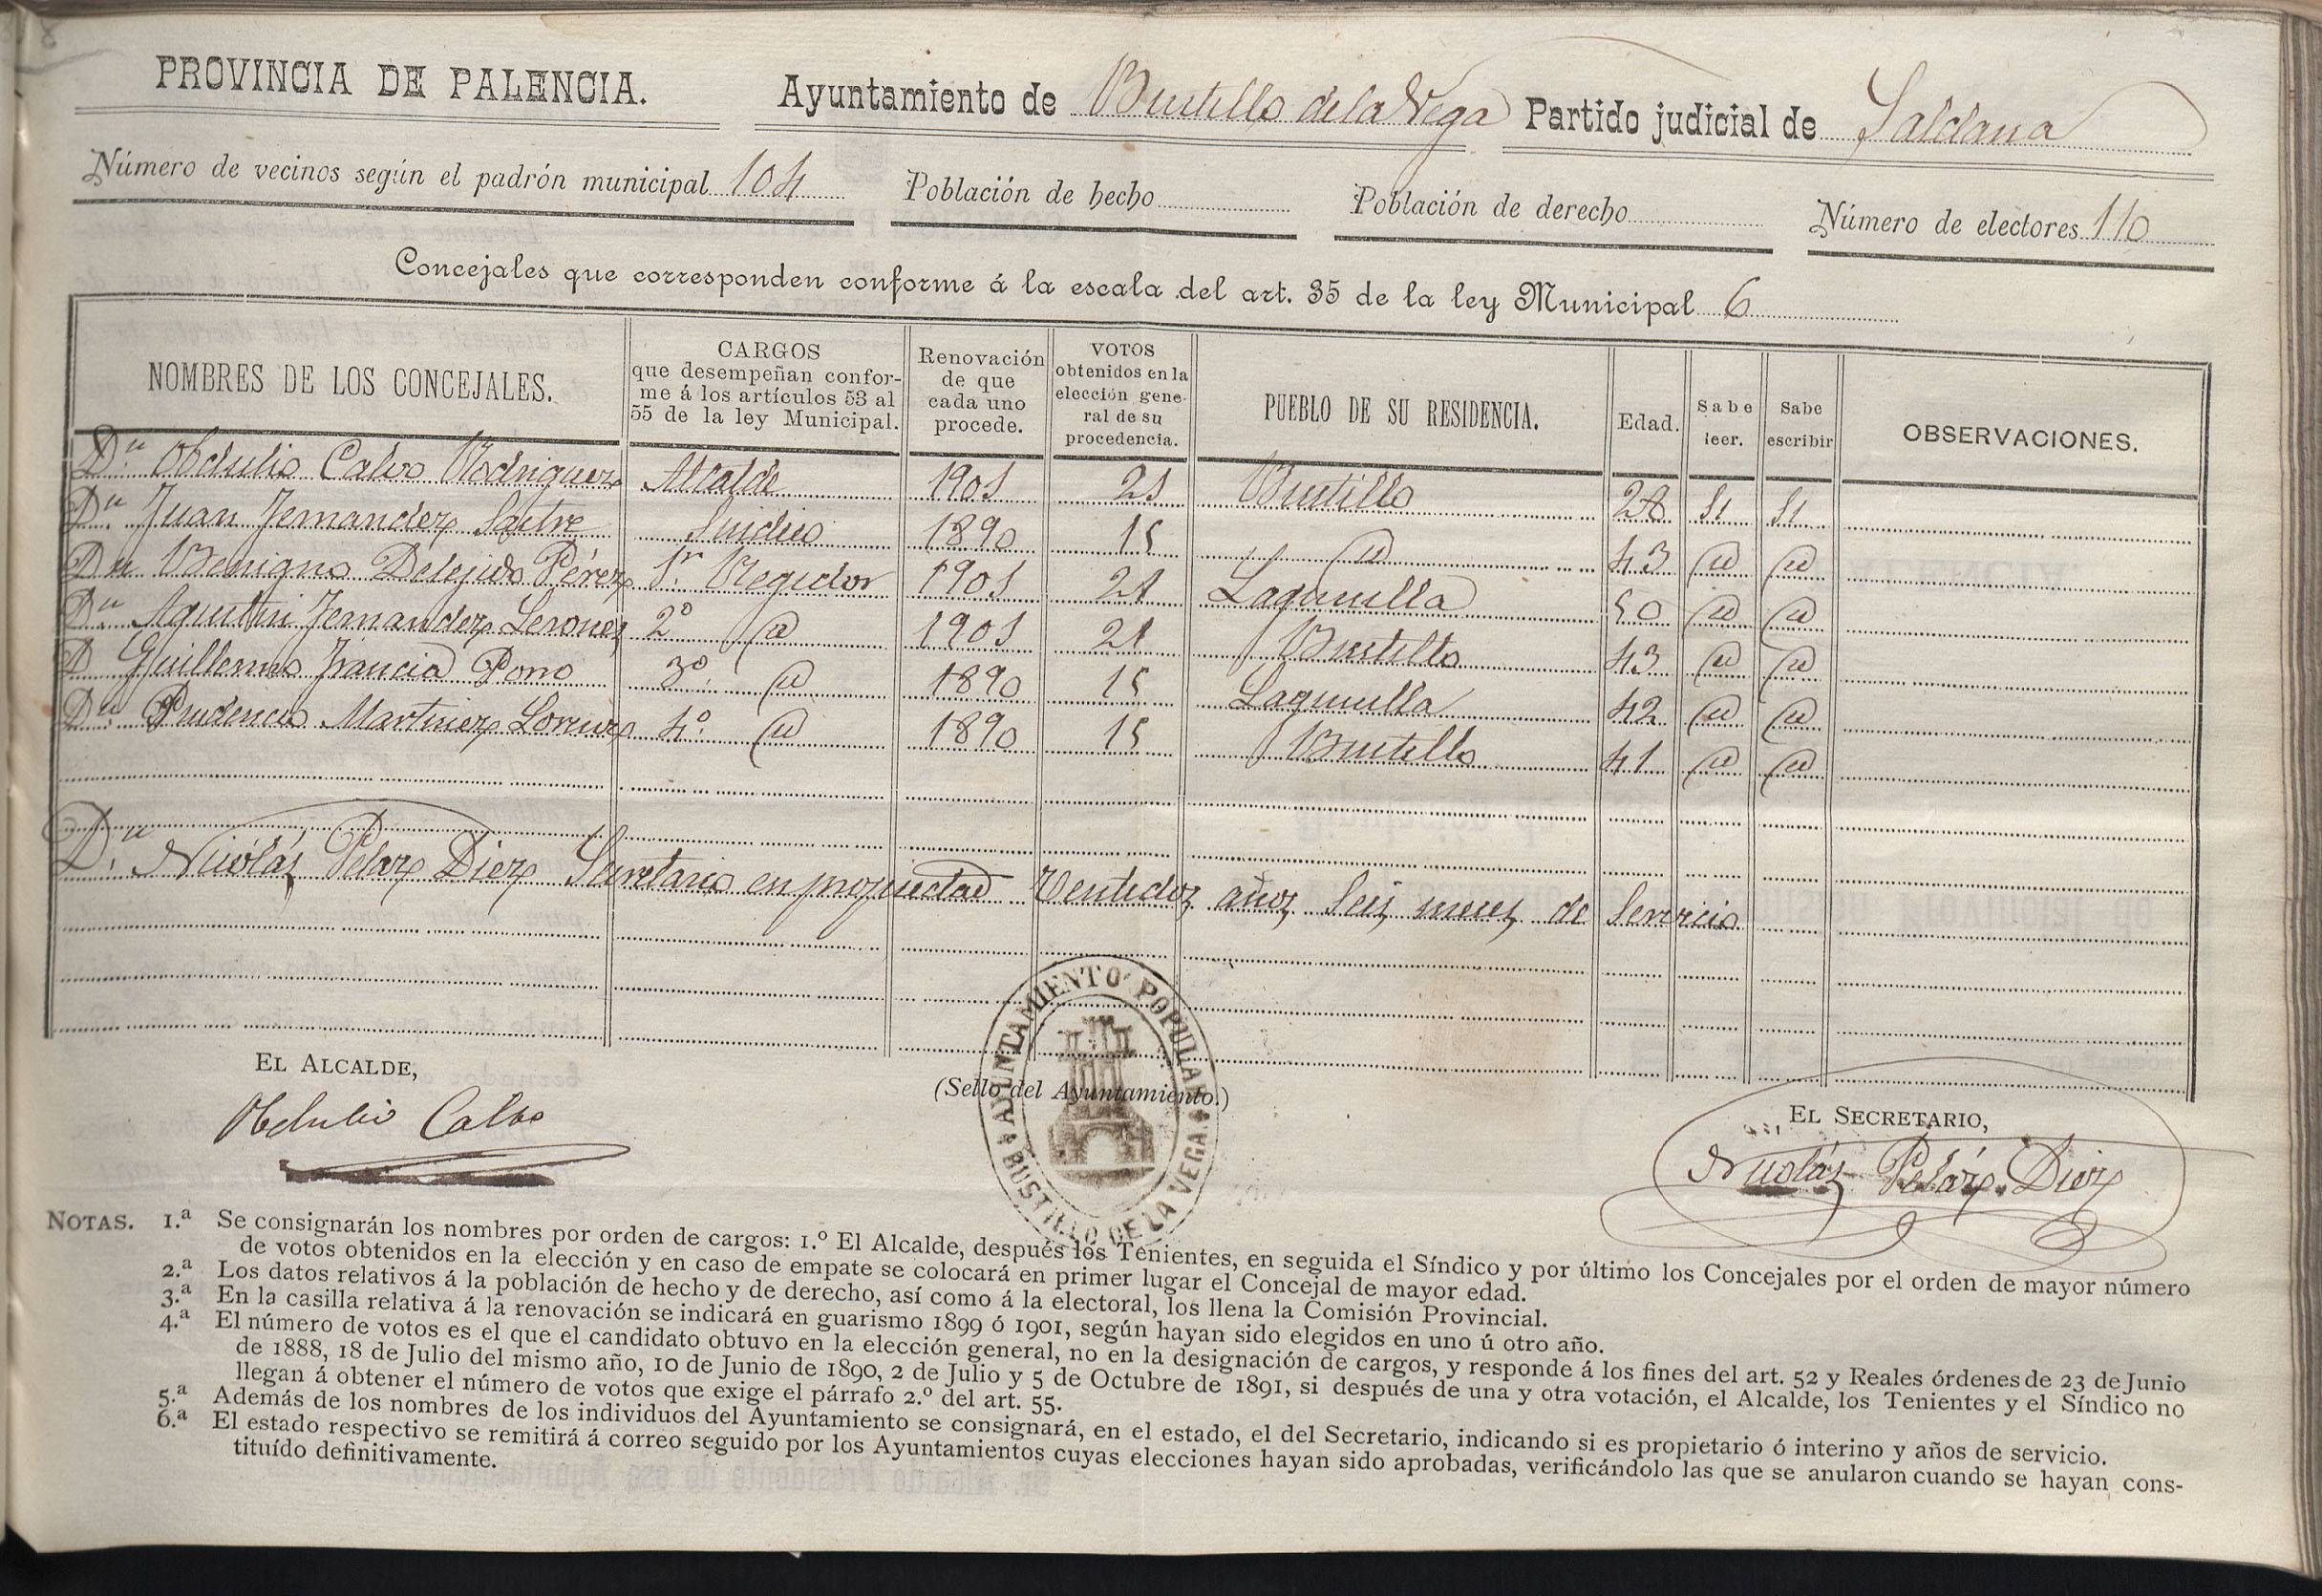 PROVINCIA DE PALENCIA. Ayuntamiento de Bustillo de la Vega Partido judicial de Saldana
Número de vecinos según el padrón municipal 104 Población de hecho Población de derecho Número de electores 110
Concejales que corresponden conforme á la escala del art. 35 de la ley Municipal 6
NOMBRES DE LOS CONCEJALES. CARGOS que desempeñan confor- me á los artículos 53 al 55 de la ley Municipal. Renovación de que cada uno procede. VOTOS obtenidos en la elección gene- ral de su procedencia. PUEBLO DE SU RESIDENCIA. Edad. Sabe leer. Sabe escribir OBSERVACIONES.
Dn Obdulio Calvo Rodriguez Alcalde 1901 21 Bustillo 28 Si Si
Dn Juan Fernandez Sastre Sindico 1890 15 " id 43 id id
Dn Benigno Delejido Pérez 1r Regidor 1901 21 Lagunilla 50 id id
Dn Agustin Fernandez Lerones 2º id 1901 21 Bustillo 43 id id
D Guillermo Francia Porro 3º id 1890 15 Lagunilla 42 id id
Dn Prudencio Martinez Lorenzo 4º id 1890 15 Bustillo 41 id id
Dn Nicolás Pelaz Diez Secretario en propiedad Ventidos años seis meses de Servicio
EL ALCALDE,
Obdulio Calvo
(Sello del Ayuntamiento.)
AYUNTAMIENTO POPULAR
BUSTILLO DE LA VEGA
EL SECRETARIO,
Nicolás Peláz Diez
NOTAS. 1.ª Se consignarán los nombres por orden de cargos: 1.º El Alcalde, después los Tenientes, en seguida el Síndico y por último los Concejales por el orden de mayor número
de votos obtenidos en la elección y en caso de empate se colocará en primer lugar el Concejal de mayor edad.
2.ª Los datos relativos á la población de hecho y de derecho, así como á la electoral, los llena la Comisión Provincial.
3.ª En la casilla relativa á la renovación se indicará en guarismo 1899 ó 1901, según hayan sido elegidos en uno ú otro año.
4.ª El número de votos es el que el candidato obtuvo en la elección general, no en la designación de cargos, y responde á los fines del art. 52 y Reales órdenes de 23 de Junio
de 1888, 18 de Julio del mismo año, 10 de Junio de 1890, 2 de Julio y 5 de Octubre de 1891, si después de una y otra votación, el Alcalde, los Tenientes y el Síndico no
llegan á obtener el número de votos que exige el párrafo 2.º del art. 55.
5.ª Además de los nombres de los individuos del Ayuntamiento se consignará, en el estado, el del Secretario, indicando si es propietario ó interino y años de servicio.
6.ª El estado respectivo se remitirá á correo seguido por los Ayuntamientos cuyas elecciones hayan sido aprobadas, verificándolo las que se anularon cuando se hayan cons-
tituído definitivamente.